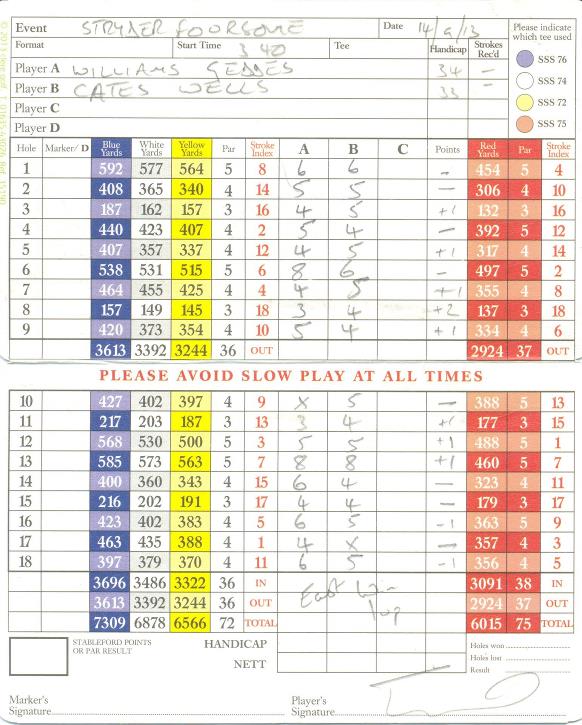 Event STRYDER FOURSOME Date 14/9/13 Please indicate
which tee used
Format Start Time 3 40 Tee Handicap Strokes
Rec'd
Player A WILLIAMS GEDDES 34 —
Player B CATES WELLS 33 —
Player C
Player D
SSS 76
SSS 74
SSS 72
SSS 75
Hole Marker/ D Blue Yards White Yards Yellow Yards Par Stroke Index A B C Points Red Yards Par Stroke Index
1 592 577 564 5 8 6 6 - 454 5 4
2 408 365 340 4 14 5 5 - 306 4 10
3 187 162 157 3 16 4 5 +1 132 3 16
4 440 423 407 4 2 5 4 - 392 5 12
5 407 357 337 4 12 4 5 +1 317 4 14
6 538 531 515 5 6 8 6 - 497 5 2
7 464 455 425 4 4 4 5 +1 355 4 8
8 157 149 145 3 18 3 4 +2 137 3 18
9 420 373 354 4 10 5 4 +1 334 4 6
3613 3392 3244 36 OUT 2924 37 OUT
PLEASE AVOID SLOW PLAY AT ALL TIMES
10 427 402 397 4 9 X 5 — 388 5 13
11 217 203 187 3 13 3 4 +1 177 3 15
12 568 530 500 5 3 5 5 +1 488 5 1
13 585 573 563 5 7 8 8 +1 460 5 7
14 400 360 343 4 15 6 4 — 323 4 11
15 216 202 191 3 17 4 4 — 179 3 17
16 423 402 383 4 5 6 5 -1 363 5 9
17 463 435 388 4 1 4 X — 357 4 3
18 397 379 370 4 11 6 5 -1 356 4 5
3696 3486 3322 36 IN 3091 38 IN
3613 3392 3244 36 OUT 2924 37 OUT
7309 6878 6566 72 TOTAL 6015 75 TOTAL
East win
1up
STABLEFORD POINTS
OR PAR RESULT
HANDICAP
NETT
Holes won
Holes lost
Result
Marker's
Signature
Player's
Signature